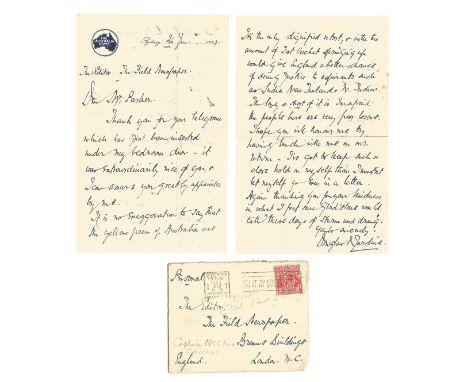 THE AUSTRALIA HOTEL
Sydney,
The Editor, The Field Newspaper.
Dear Mr. Parker.
Thank you for your telegram
which has just been inserted
under my bedroom door - it
was extraordinarily nice of you &
I can assure you greatly appreciated
by me.
It is no exaggeration to say that
the yellow press of Australia are
It's the only dignified retort, & with the
amount of Test Cricket springing up
would give England a better chance
of doing justice to aspirants such
as India New Zealand & W. Indies.
The long & short of it is I'm afraid
the people here are very poor losers.
I hope you will honour me by
having lunch with me on our
return - I've got to keep such a
close hold on myself then I must not
let myself go even in a letter.
Again thanking you for your kindness
in what I feel sure Gladstone would
call these days of storm and
Yours sincerely
Douglas R Jardine.
Personal
SYDNEY
The Editor.
The Field Newspaper.
Breams Buildings
England. London. W.C.